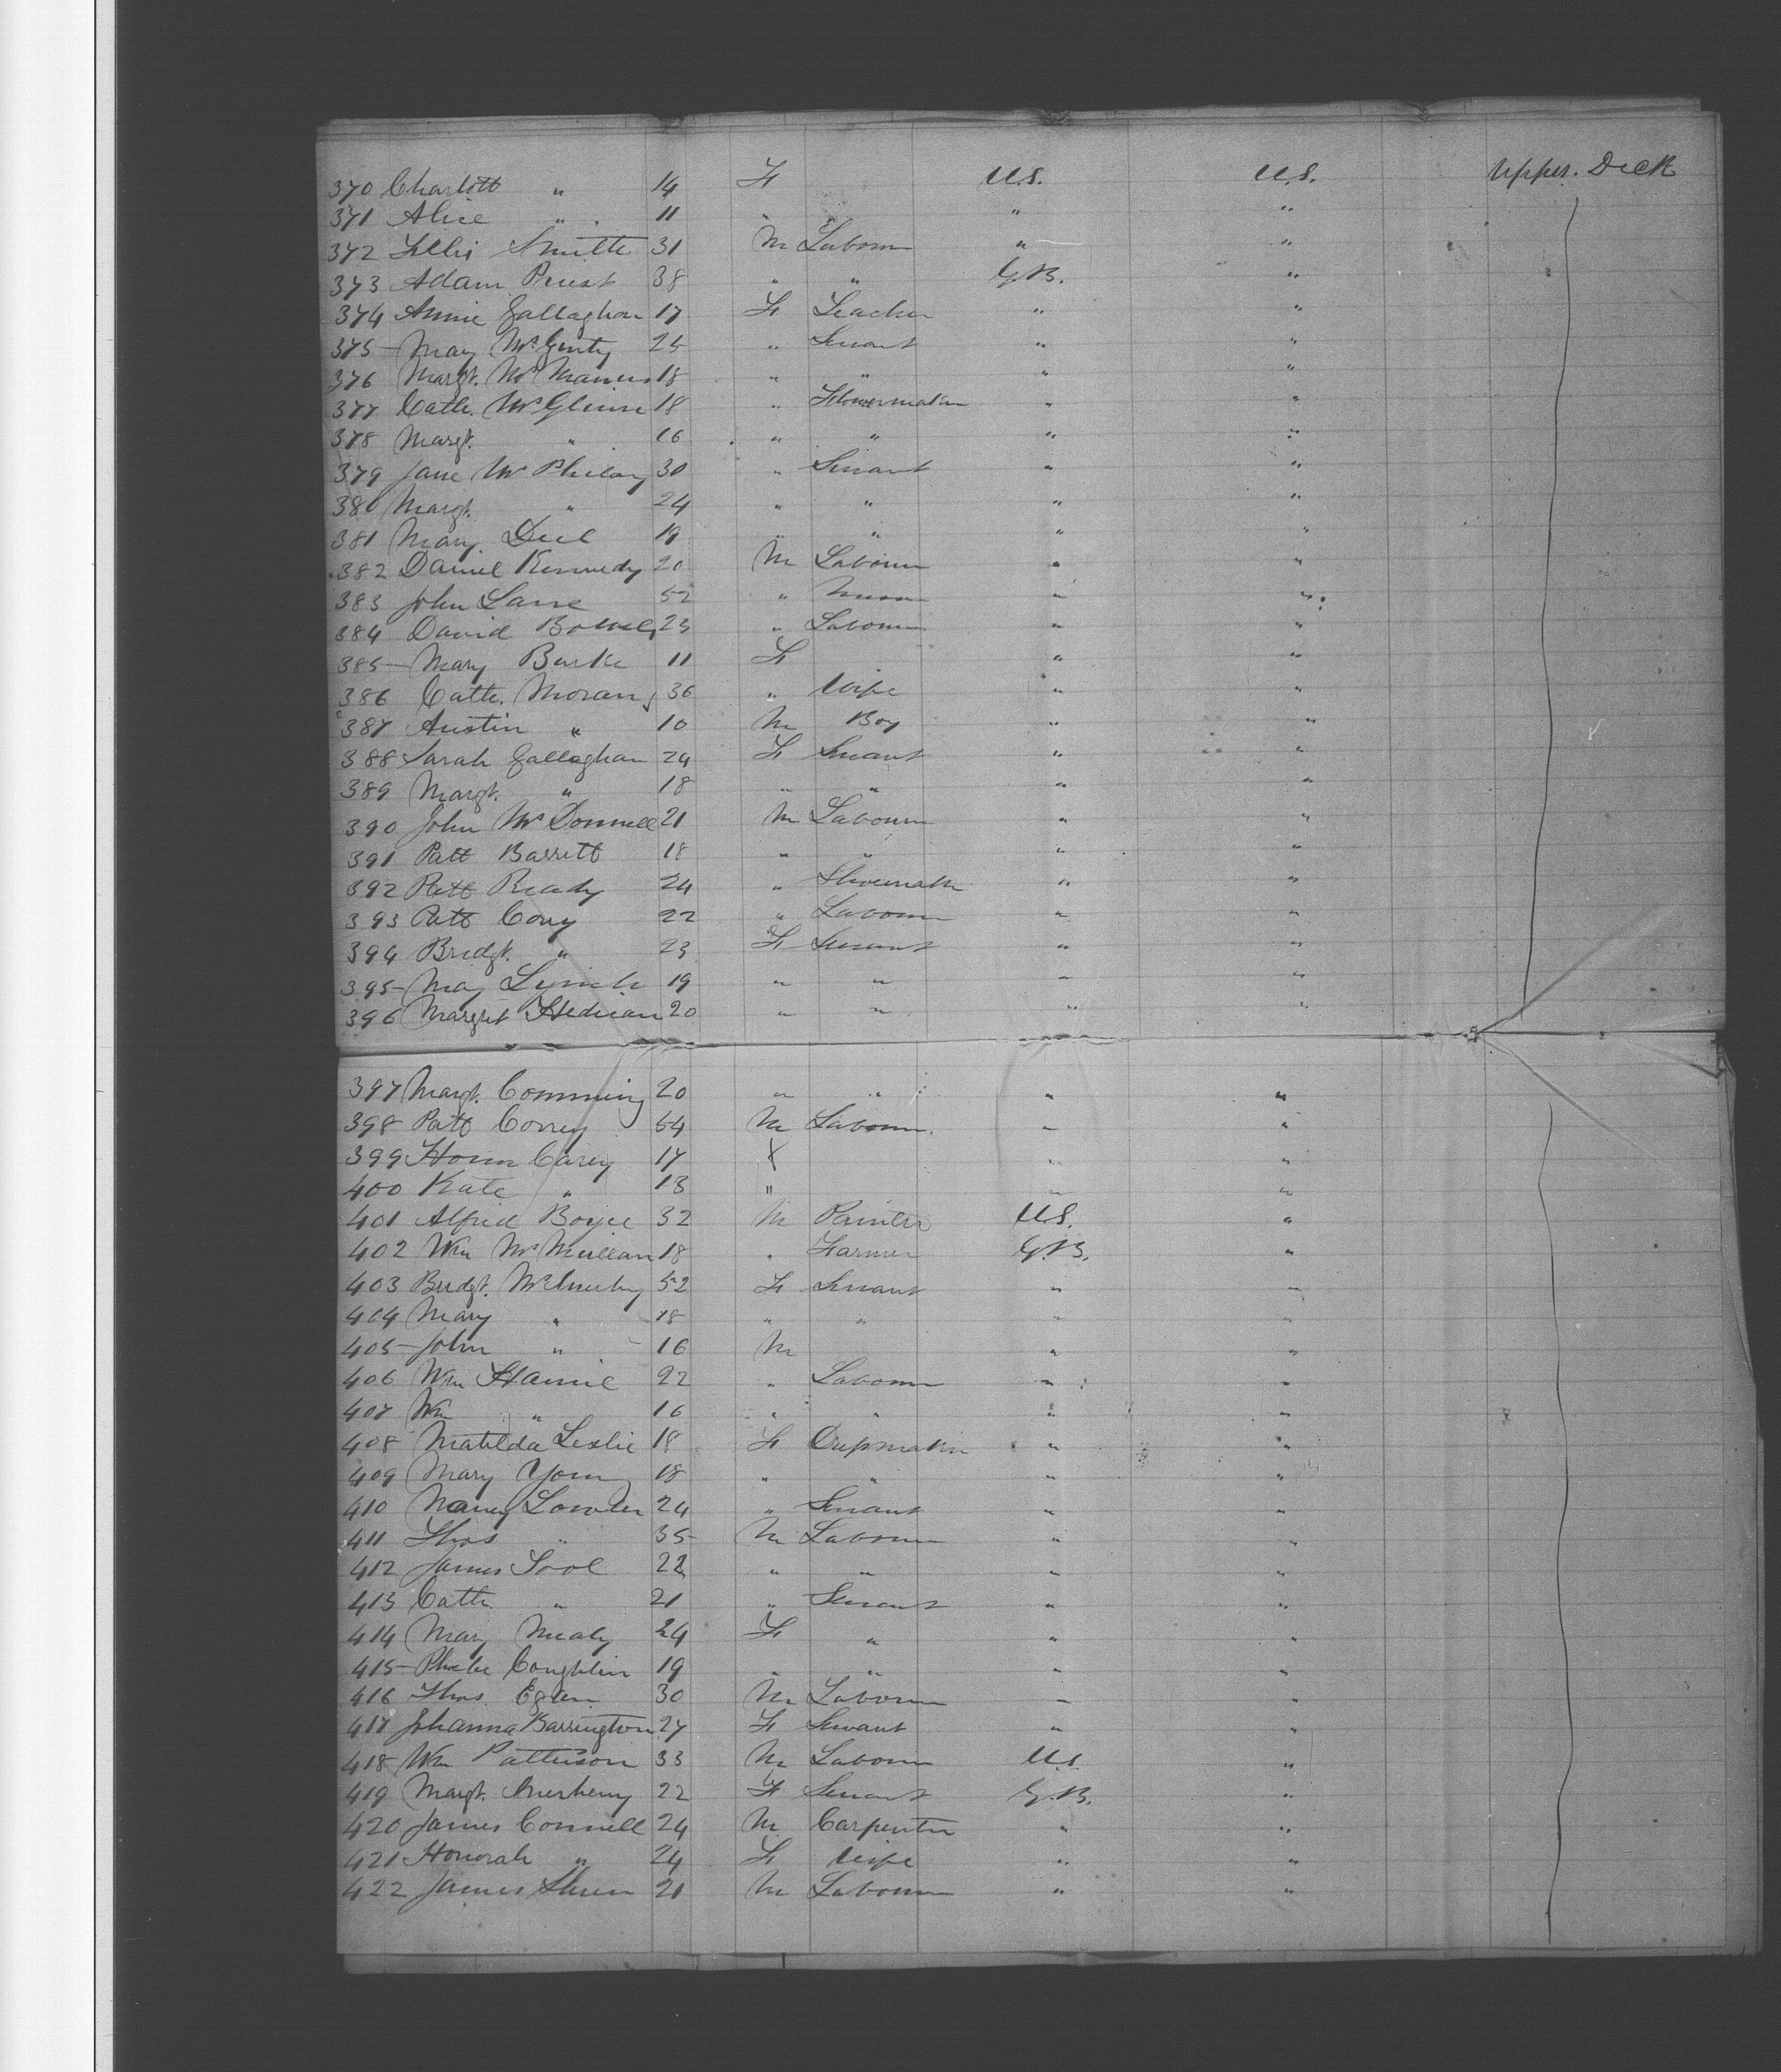 370 Charlott " 14 F U.S. U.S. Upper. Deck
371 Alice " 11 " " "
372 Smith 31 M Labourer " "
373 Adam Priest 38 " " G.B. "
374 Annie Gallaghan 17 F Teacher " "
375 Mary McGinty 25 " Servant " "
376 Margt. McManus 18 " " " "
377 Cath. McGlinn 18 " Flowermaker " "
378 Margt. " 16 " " " "
379 Jane McPhilany 30 " Servant " "
380 Margt. " 24 " " " "
381 Mary 19 " " " "
382 Daniel Kennedy 20 M Labourer " "
383 John Lane 52 " " "
384 David 23 " Labourer " "
385 Mary Burke 11 F " "
386 Cath. Moran 36 " Wife " "
387 Austin " 10 M Boy " "
388 Sarah Gallaghan 24 F Servant " "
389 Margt. " 18 " " " "
390 John McDonnell 21 M Labourer " "
391 Patt Barrett 18 " " " "
392 Patt Ready 24 " Shoemaker " "
393 Patt Cony 22 " Labourer " "
394 Bridgt. " 23 F Servant " "
395 May Lynch 19 " " " "
396 Margret Hedican 20 " " " "
397 Margt. Comming 20 " " " "
398 Patt Correy 54 M Labourer " "
399 Carey 17 " "
400 Kate " 13 " " "
401 Alfred Boyce 32 M Painter U.S. "
402 Wm McMillan 18 " Farmer G.B. "
403 Bridgt. 52 F Servant " "
404 Mary " 18 " " " "
405 John " 16 M " "
406 Wm 22 " Labourer " "
407 Wm " 16 " " " "
408 Matilda Leslie 18 F Dressmaker " "
409 Mary Young 18 " " " "
410 Nancy Lowden 24 " Servant " "
411 Thos " 35 M Labourer " "
412 James 22 " " " "
413 Cath. " 21 " Servant " "
414 Mary Nealy 24 F " " "
415 Phebe Coughlin 19 " " " "
416 Thos. Egan 30 M Labourer " "
417 Johanna Barrington 27 F Servant " "
418 Wm Patterson 33 M Labourer U.S. "
419 Margt. 22 F Servant G.B. "
420 James Connell 24 M Carpenter " "
421 Honorah " 24 F Wife " "
422 James 21 M Labourer " "